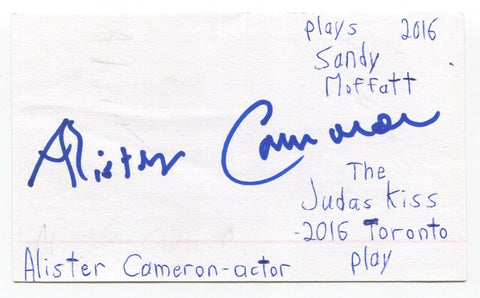 plays 2016
Sandy
Moffatt
Alister Cameron
The
Judas Kiss
-2016 Toronto
play
Alister Cameron-actor